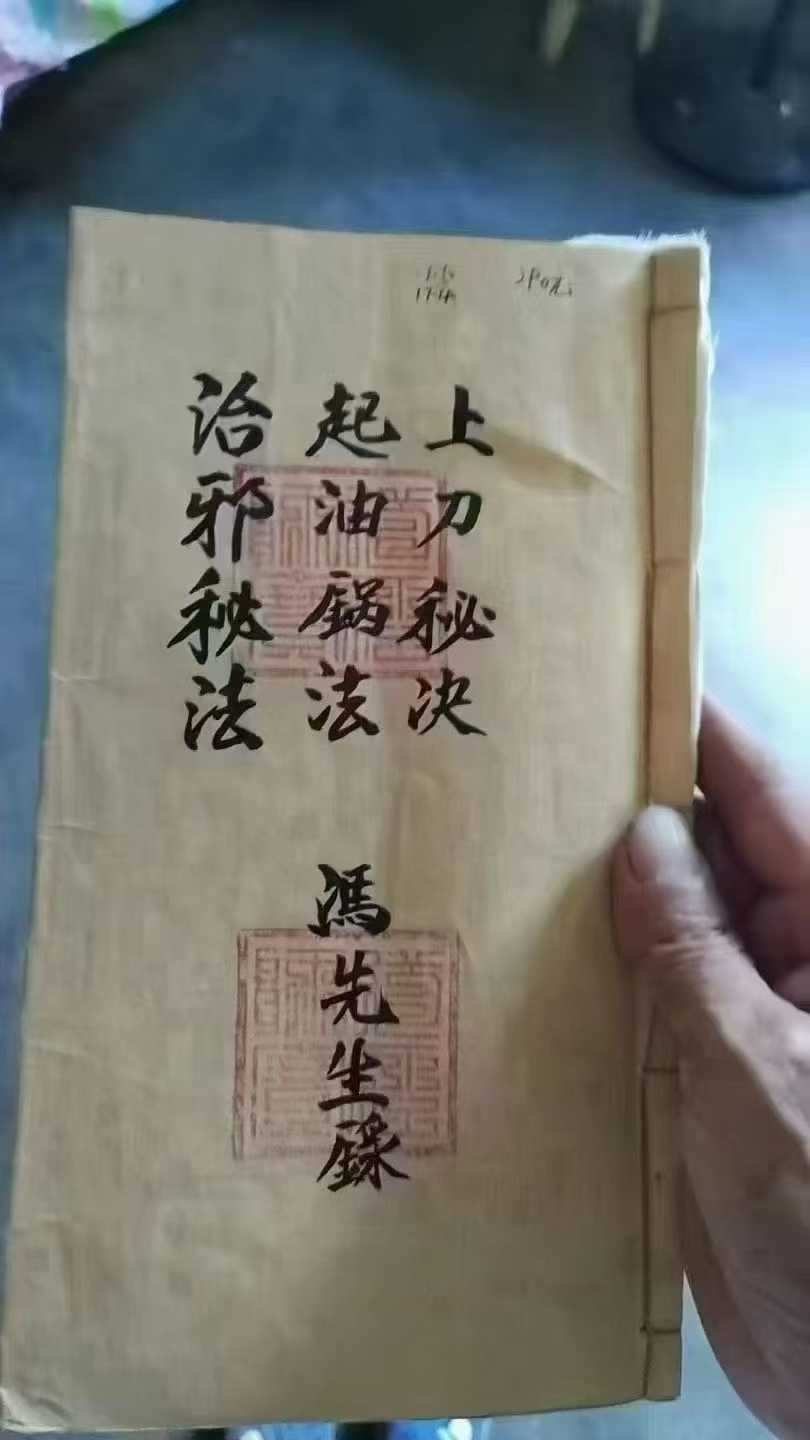 上刀秘决
起油锅法
治邪秘法
馮先生錄